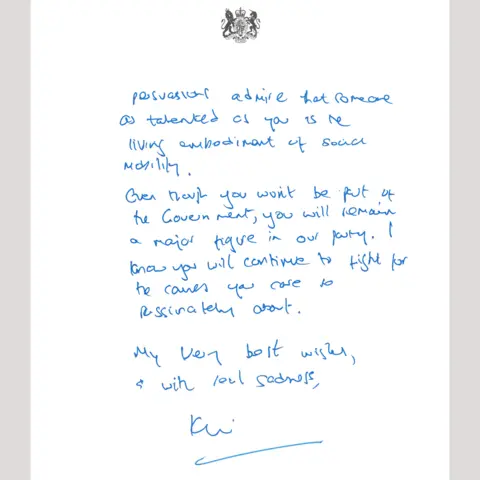 persuasions admire that someone
as talented as you is the
living embodiment of social
mobility.
Even though you won't be part of
the Government, you will remain
a major figure in our party. I
know you will continue to fight for
the causes you care so
passionately about.
My very best wishes,
& with real sadness,
Keir